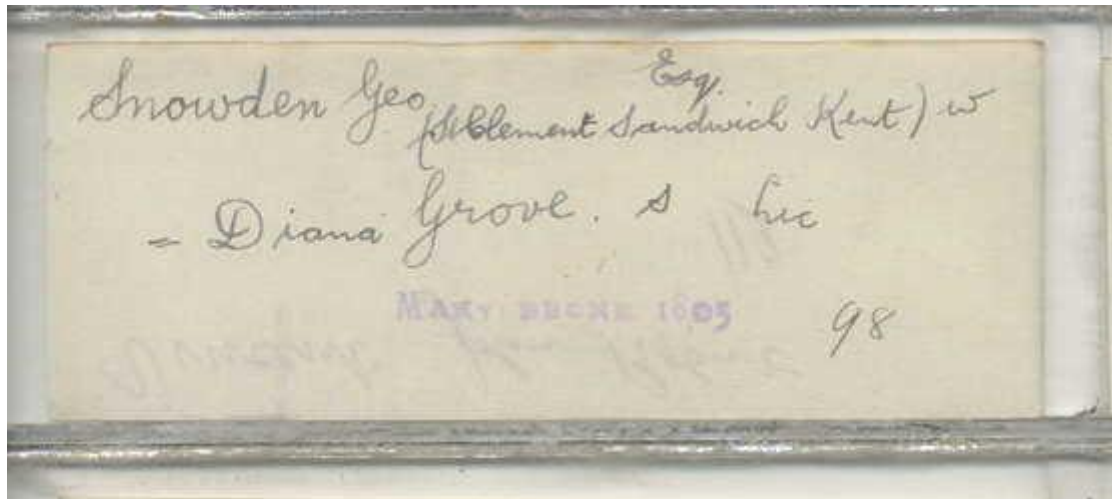 Snowden Geo Esq.
(St Clement Sandwich Kent) w
= Diana Grove. s lic
1805
98